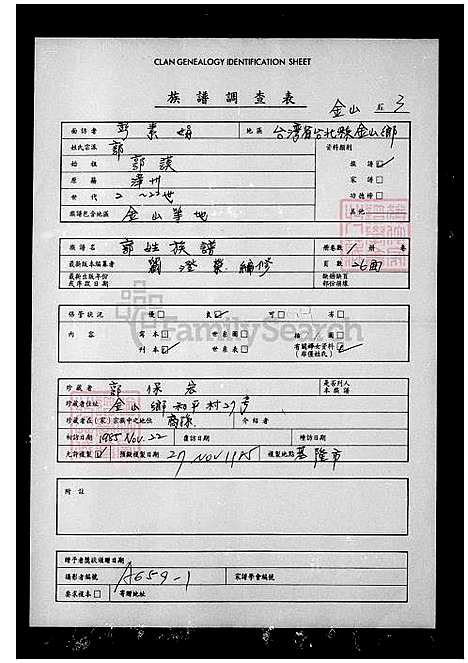 CLAN GENEALOGY IDENTIFICATION SHEET
族譜調查表
金山 3
面訪者 彭素娟 地區 台灣省台北縣金山鄉
姓氏宗派 郭 資料類別
始祖 郭謨 族譜
原籍 漳州 家譜
世代 2 ~ 22世 功德榜
族譜包含地區 金山等地 其他
族譜名 郭姓族譜 冊卷數 1 冊 卷
最新版本編纂者 劉澄榮編修 頁數 26面
最新出版年份或序跋日期 缺損缺頁部份損壞
保管狀況 優 良 可 劣
內容 寫本 世系圖 插圖
刊本 世系表 有關婦女資料(非僅姓氏)
珍藏者 郭保宏 是否列入本族譜
珍藏者住址 金山鄉和平村27号
珍藏者在(家)宗族中之地位 裔孫 介紹者
初訪日期 1985 Nov. 22 復訪日期 續訪日期
允許複製 預擬複製日期 27 Nov 1985 複製地點 基隆市
附註
贈予者獎狀頒贈日期
攝影者編號 A659-1 家譜學會編號
要求複本 寄贈地址
FamilySearch